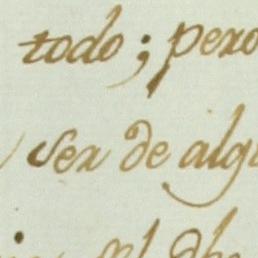 todo; pero
ser de alg